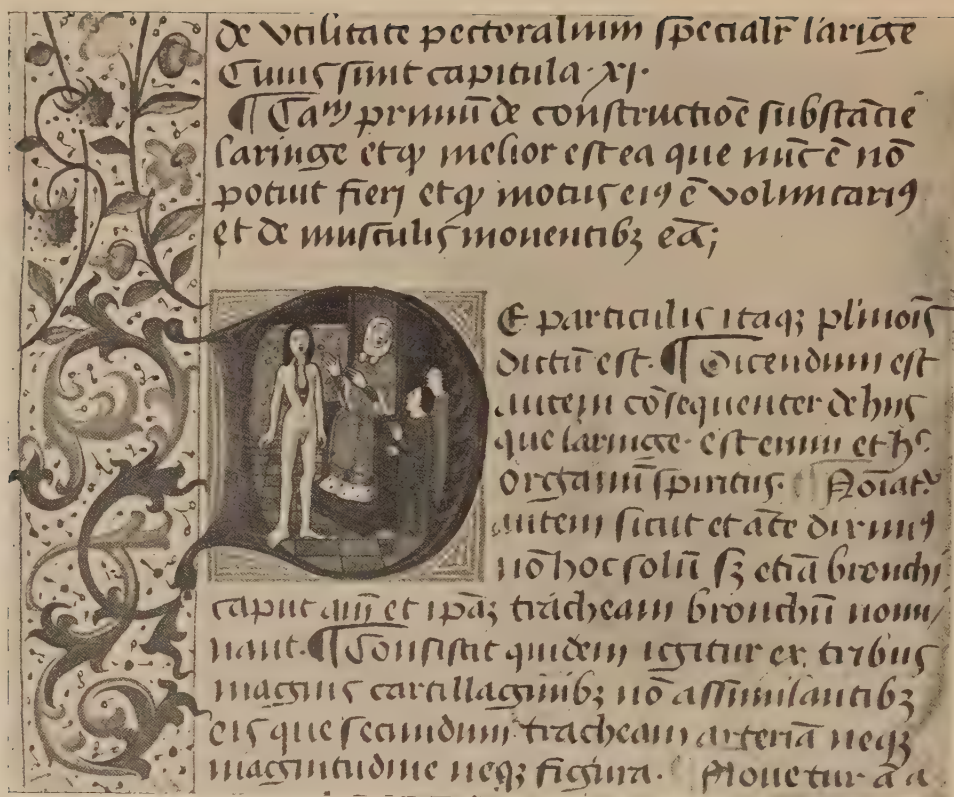 de vtilitate pectoralium specialr̄ larīge
Cuius sunt capitula ·xj·
¶ Camͫ primū de constructiōe substācie
laringe et ꝙ melior est ea que nūc ē nō
potiut fierj et ꝙ motus eiꝰ ē voluntariꝰ
et de musculis mouentibꝫ eā;
DE particulis itaqꝫ plimoīs
dictū est. ¶ Dicendum est
autem cōsequenter de hijs
que laringe· est enim et hͨ
organū spiritus. Noīatᷣ
autem sicut et āte diximꝰ
nō hoc solū sꝫ etiā bronchi
caput aūt et ipāꝫ tracheam bronchū nomi/
nant. ¶ Consistit quidem igitur ex tribus
magnis cartillaginibꝫ nō assimilantibꝫ
eis que secundum tracheam arteriā neqꝫ
magnitudine neqꝫ figura. Mouetur ā a